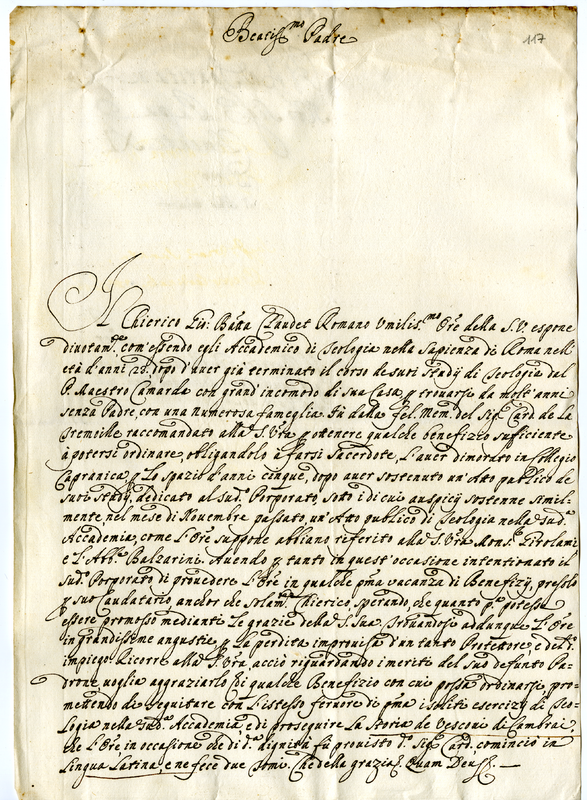 Beatiss.mo Padre
117
Il Chierico Gio: Batta Claudet Romano Umilis.mo Ore della S.V. espone
divotam.e com'essendo egli Accademico di Teologia nella Sapienza di Roma nell'
età d'anni 23. dopo d'auer già terminato il corso de suoi Studij di Teologia dal
P. Maestro Camarda con grand'incomodo di sua Casa p trouarsi da molt'anni
senza Padre, con una numerosa fameglia fù dalla fel. Mem. del Sig. Card. de La
Tremoille raccomandato alla S. Vra p ottenere qualche benefizio sufficiente
à potersi ordinare, obligandolo à farsi Sacerdote, L'auer dimorato in Collegio
Capranica p Lo spazio d'anni cinque, dopo auer sostenuto un'Atto publico de
suoi Studij, dedicato al Sud. Porporato, sotto i di cui auspicij sostenne simil-
mente nel mese di Nouembre passato, un'Atto publico di Teologia nella sud.a
Accademia, come L'Ore suppone abbiano riferito alla S. Vra Mons.r Girolami
e L'Abb. Balzarini. Auendo p tanto in quest'occasione intentionato il
Sud. Porporato di prouedere L'Ore in qualche pma vacanza di Benefizij, preselo
p suo Caudatario, anchor che solam.e Chierico, sperando, che quanto p.a potesse
essere promosso mediante Le grazie della S. Sua. Trouandosi addunque L'Ore
in grandissime angustie p La perdita improuisa d'un tanto Protettore, e del d.o
impiego. Ricorre alla S. Vra, acciò riguardando i meriti del suo defunto Pa-
drone voglia aggraziarlo di qualche Benefizio con cui possa ordinarsi, pro-
mettendo di seguitare con L'istesso feruore di pma i soliti esercizij di Teo-
Logia nella sud.a Accademia, e di proseguire La Storia de Vescoui di Cambrai,
che L'Ore, in occasione che di d.a dignità fù prouisto d.o Sig. Card. cominciò in
Lingua Latina, e ne fece due Tomi. Che della grazia &. Quam Deus &.